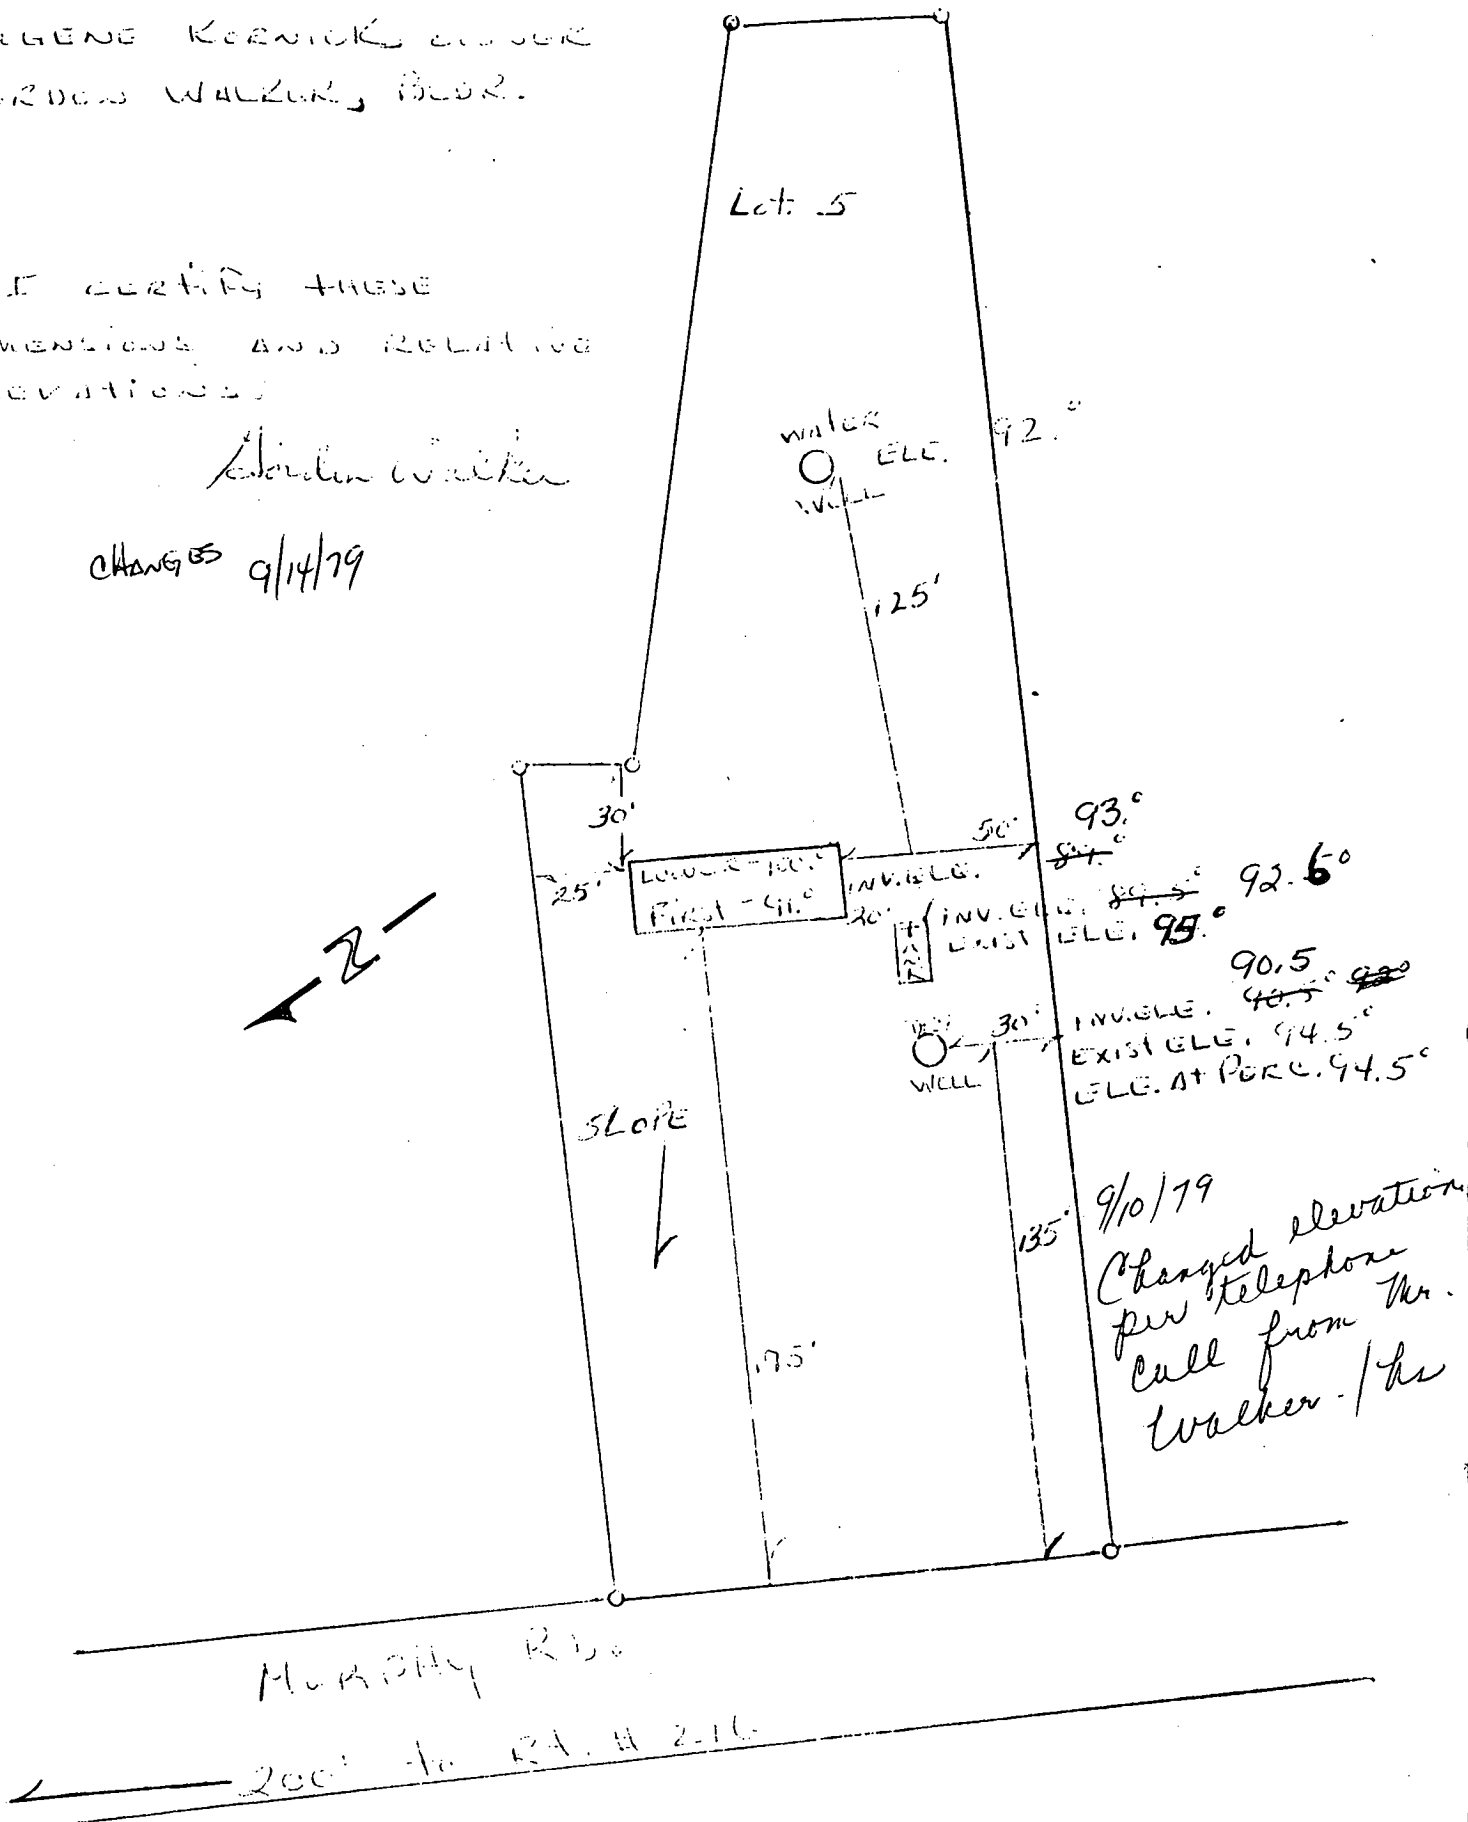 GENE KORNICK, OWNER
RDON WALKER, BLDR.
Lot 5
I CERTIFY THESE
MENSIONS AND RELATIVE
EVATIONS.
Gordon Walker
CHANGES 9/14/79
WATER
WELL
ELE. 92.°
125'
30'
25'
50'
93.°
LOWER - 100.°
FIRST - 91.°
INV. ELE.
20'
INV. ELE. 89.5° 92.6°
EXIST ELE. 95.°
TANK
N
90.5
DRY
WELL
30'
INV. ELE. 90.5°
EXIST ELE. 94.5°
ELE. At PERC. 94.5°
SLOPE
175'
135'
9/10/79
Changed elevation
per telephone
call from Mr.
Walker. /hs
MURPHY RD.
200' to Rt. # 216